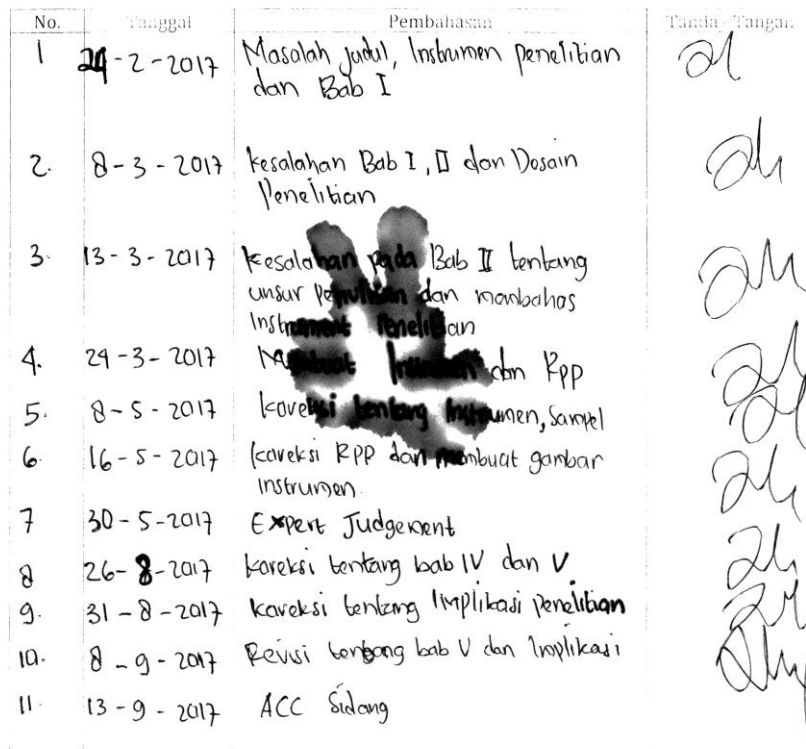 No. Tanggal Pembahasan Tanda Tangan
1 24-2-2017 Masalah judul, Instrumen penelitian
dan Bab I
2. 8-3-2017 kesalahan Bab I, II dan Desain
Penelitian
3. 13-3-2017 kesalahan pada Bab II tentang
unsur dan membahas
Instrument Penelitian
4. 29-3-2017 Membuat Instrumen dan Rpp
5. 8-5-2017 koreksi tentang Instrumen, Sampel
6. 16-5-2017 koreksi RPP dan membuat gambar
instrumen.
7 30-5-2017 Expert Judgement
8 26-8-2017 koreksi tentang bab IV dan V
9. 31-8-2017 koreksi tentang Implikasi penelitian
10. 8-9-2017 Revisi tentang bab V dan Implikasi
11. 13-9-2017 ACC Sidang